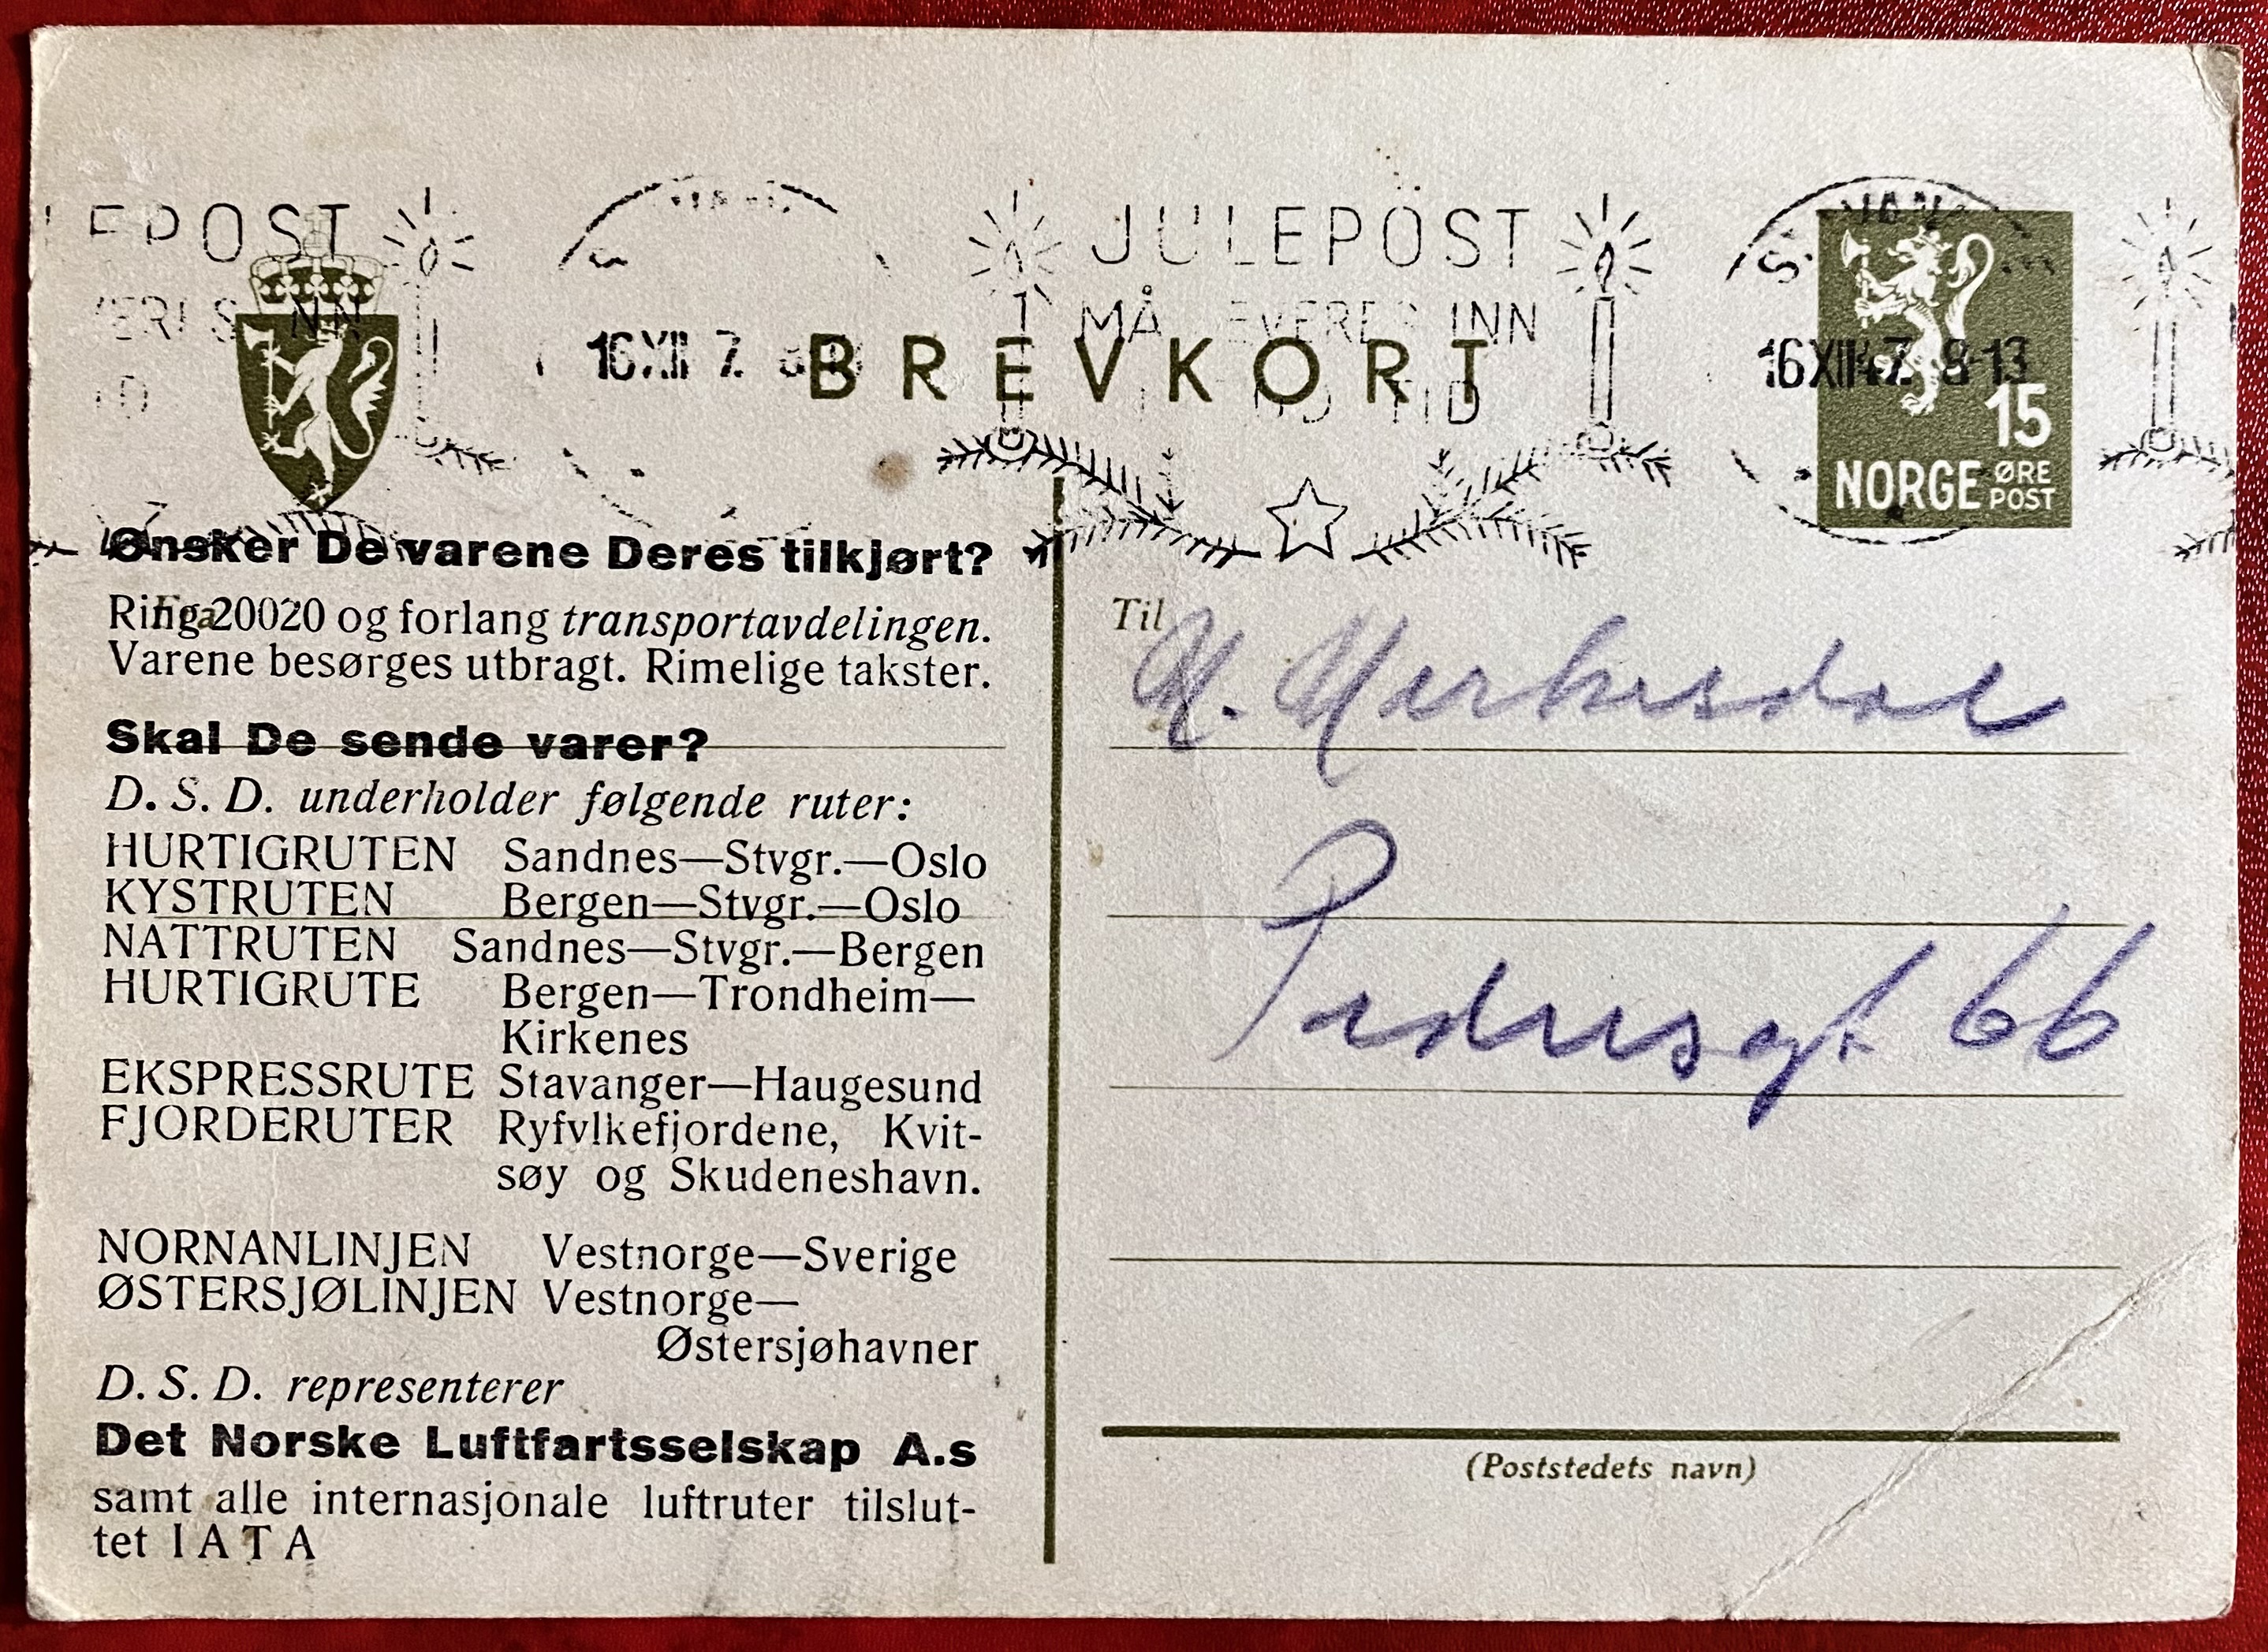 EPOST
JULEPOST
MÅ LEVERES INN
TID
16 XII 7. 8
16 XII 47. 8-13
BREVKORT
15
NORGE ØRE
POST
Ønsker De varene Deres tilkjørt?
Fra
Ring 20020 og forlang transportavdelingen.
Varene besørges utbragt. Rimelige takster.
Skal De sende varer?
D. S. D. underholder følgende ruter:
HURTIGRUTEN Sandnes—Stvgr.—Oslo
KYSTRUTEN Bergen—Stvgr.—Oslo
NATTRUTEN Sandnes—Stvgr.—Bergen
HURTIGRUTE Bergen—Trondheim—
Kirkenes
EKSPRESSRUTE Stavanger—Haugesund
FJORDERUTER Ryfylkefjordene, Kvit-
søy og Skudeneshavn.
NORNANLINJEN Vestnorge—Sverige
ØSTERSJØLINJEN Vestnorge—
Østersjøhavner
D. S. D. representerer
Det Norske Luftfartsselskap A.s
samt alle internasjonale luftruter tilslut-
tet IATA
Til
M. Merkesdal
Pedersgt 66
(Poststedets navn)